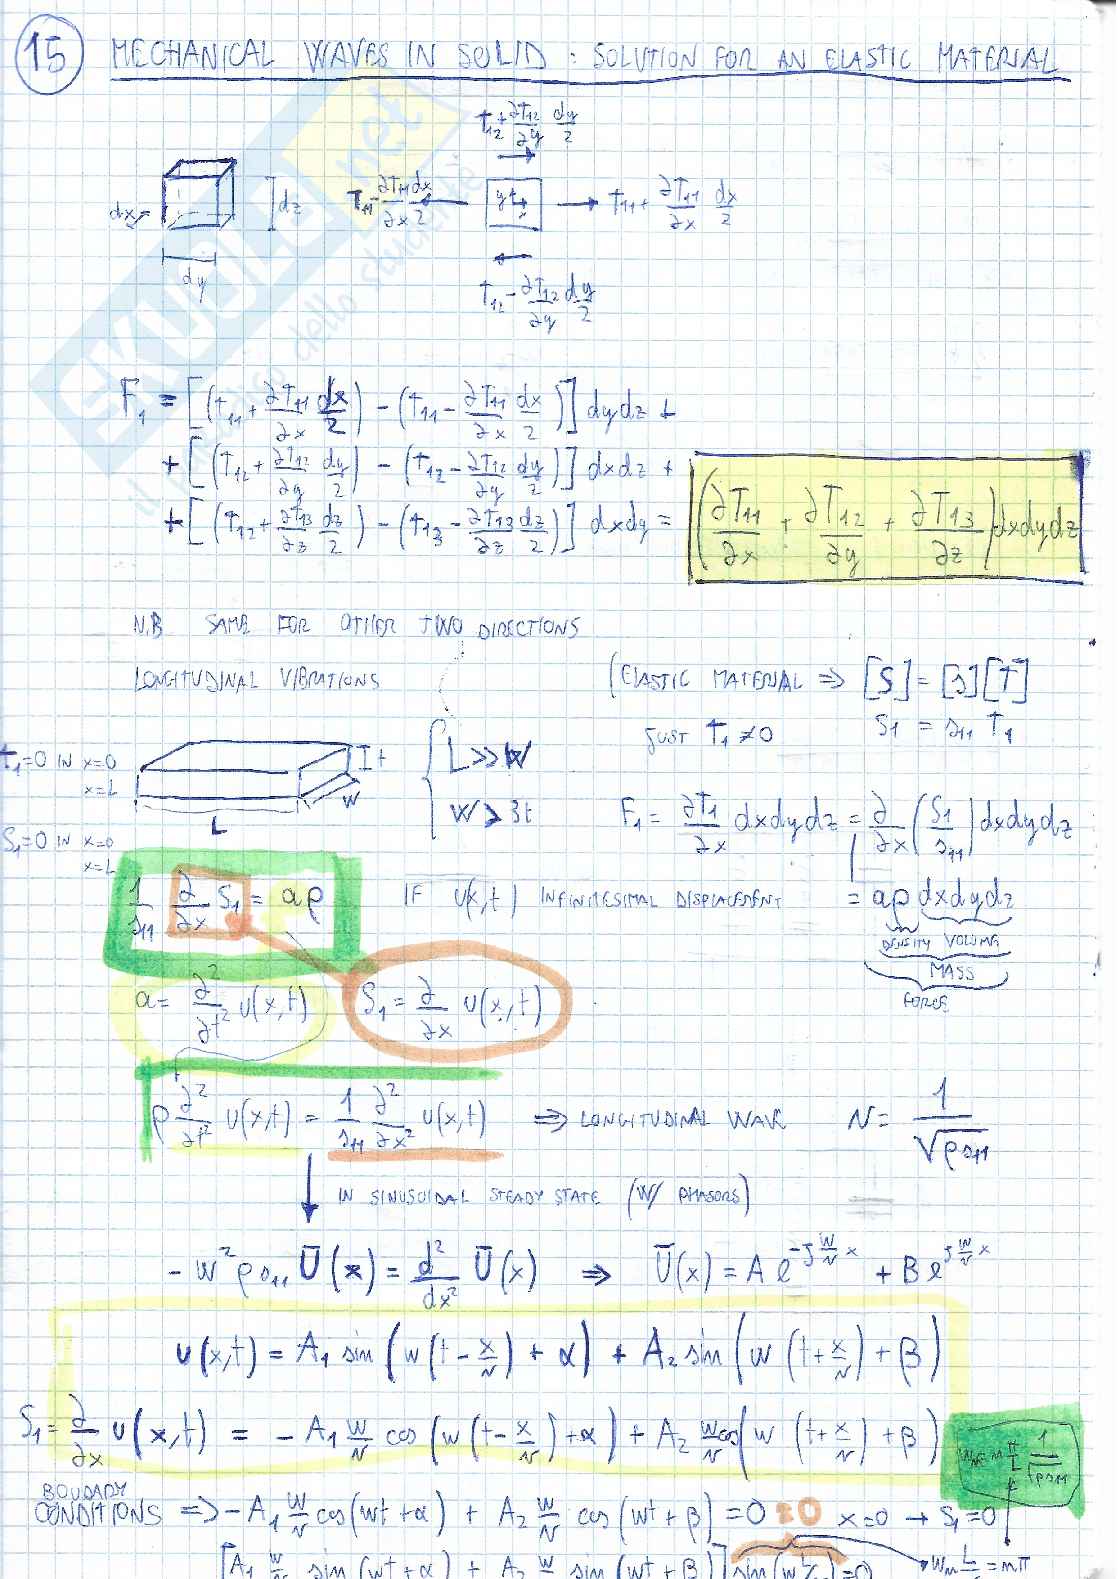 15 MECHANICAL WAVES IN SOLID : SOLUTION FOR AN ELASTIC MATERIAL
T12 + ∂T12/∂y dy/2
dx
dz
T11 - ∂T11/∂x dx/2
y
x
T11 + ∂T11/∂x dx/2
dy
T12 - ∂T12/∂y dy/2
SKUOLA.net
F1 = [(T11 + ∂T11/∂x dx/2) - (T11 - ∂T11/∂x dx/2)] dydz +
+ [(T12 + ∂T12/∂y dy/2) - (T12 - ∂T12/∂y dy/2)] dxdz +
+ [(T12 + ∂T13/∂z dz/2) - (T13 - ∂T13/∂z dz/2)] dxdy = (∂T11/∂x + ∂T12/∂y + ∂T13/∂z) dxdydz
N.B SAME FOR OTHER TWO DIRECTIONS
LONGITUDINAL VIBRATIONS
(ELASTIC MATERIAL ⇒ [S] = [s][T]
JUST T1 ≠ 0 S1 = s11 T1
T1=0 IN x=0
x=L
t
W
L
L >> W
W > 3t
F1 = ∂T1/∂x dxdydz = ∂/∂x (S1/s11) dxdydz
S1=0 IN x=0
x=L
1/s11 ∂/∂x S1 = aρ
IF u(x,t) INFINITESIMAL DISPLACEMENT
= aρ dxdydz
DENSITY VOLUME
MASS
FORCE
a = ∂²/∂t² u(x,t)
S1 = ∂/∂x u(x,t)
ρ ∂²/∂t² u(x,t) = 1/s11 ∂²/∂x² u(x,t) ⇒ LONGITUDINAL WAVE v = 1/√(ρs11)
IN SINUSOIDAL STEADY STATE (W/ PHASORS)
- w²ρs11 Ū(x) = d²/dx² Ū(x) ⇒ Ū(x) = A e^(-j w/v x) + B e^(j w/v x)
u(x,t) = A1 sin(w(t - x/v) + α) + A2 sin(w(t + x/v) + β)
S1 = ∂/∂x u(x,t) = - A1 w/v cos(w(t - x/v) + α) + A2 w/v cos(w(t + x/v) + β)
wn = n π/L 1/√(ρs11)
BOUDARY
CONDITIONS ⇒ - A1 w/v cos(wt + α) + A2 w/v cos(wt + β) = 0 x=0 → S1=0
[A1 w/v sin(wt + α) + A2 w/v sin(wt + β)] sin(w L/v) = 0 → wn L/v = nπ